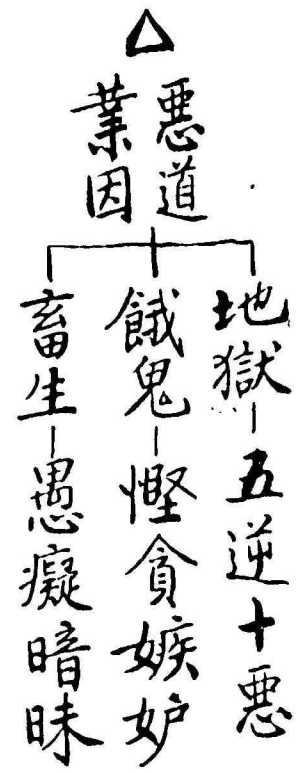 △
惡道
業因
地獄－五逆十惡
餓鬼－慳貪嫉妒
畜生－愚癡暗昧